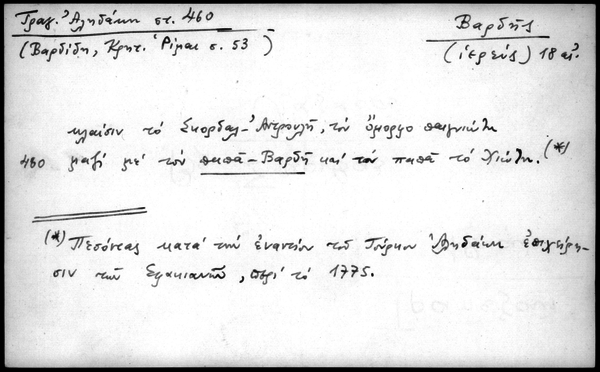 Τραγ. Ἀληδάκη στ. 460
(Βαρδίδη, Κρητ. Ῥίμαι σ. 53)
Βαρδῆς
(ἱερεύς) 18 αἰ.
κλαίσιν τὸ Σκορδαλ-Ἀντρουλῆ, τὸν ὄμορφο παιγνιώτη
460 μαζὶ μὲ τὸν παπᾶ-Βαρδῆ καὶ τὸν παπᾶ τὸ Χιώτη. (*)
(*) Πεσόντας κατὰ τὴν ἐναντίον τοῦ Τούρκου Ἀληδάκη ἐπιχείρη-
σιν τῶν Σφακιανῶν, περὶ τὸ 1775.